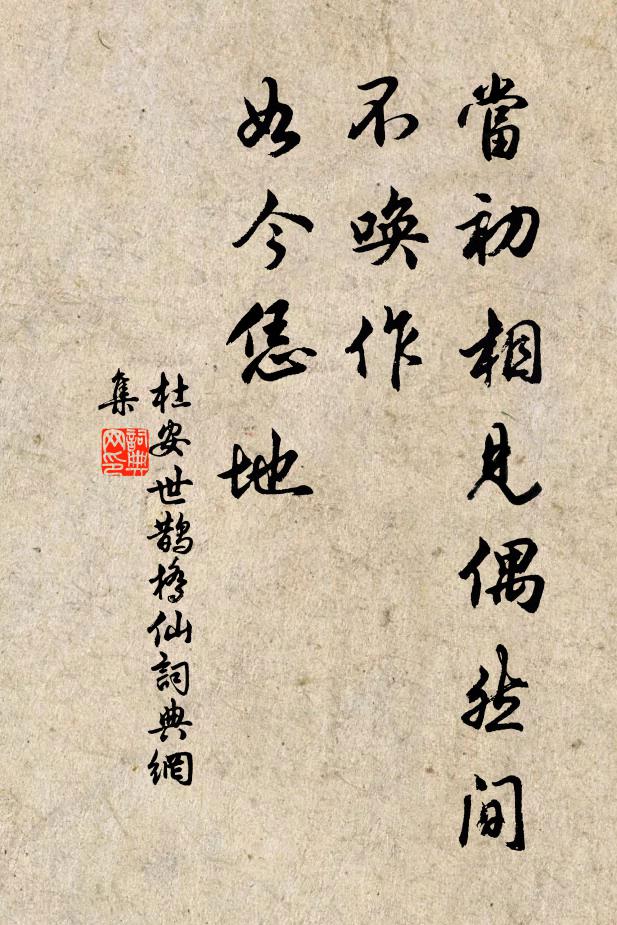 當初相見偶然間
不喚作
如今恁地
杜安世鵲橋仙詞典網
集
詞典
网印